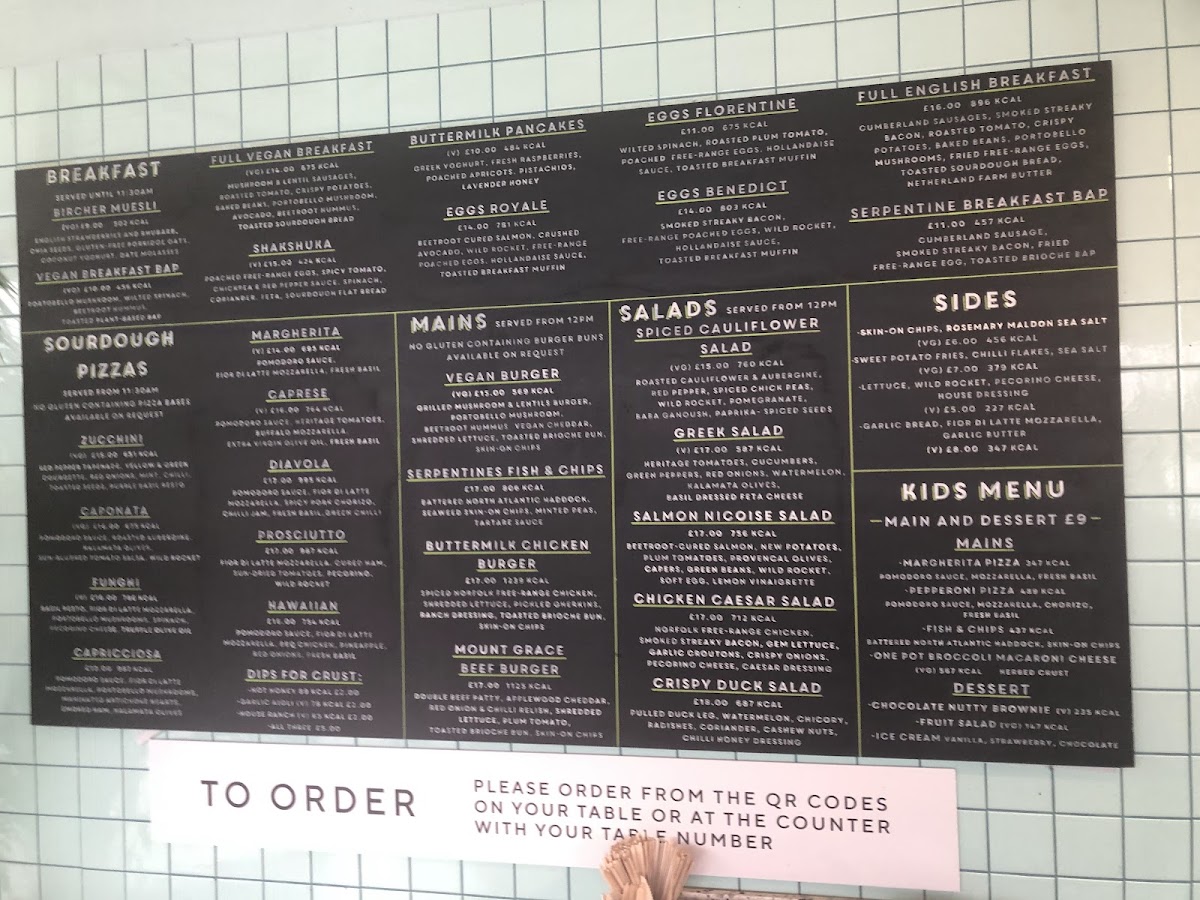 BREAKFAST
SERVED UNTIL 11:30AM
BIRCHER MUESLI
(VG) £9.00 302 KCAL
ENGLISH STRAWBERRIES AND RHUBARB,
CHIA SEEDS, GLUTEN-FREE PORRIDGE OATS,
COCONUT YOGHURT, DATE MOLASSES
VEGAN BREAKFAST BAP
(VG) £10.00 436 KCAL
PORTOBELLO MUSHROOM, WILTED SPINACH,
BEETROOT HUMMUS,
TOASTED PLANT-BASED BAP
FULL VEGAN BREAKFAST
(VG) £16.00 675 KCAL
MUSHROOM & LENTIL SAUSAGES,
ROASTED TOMATO, CRISPY POTATOES,
BAKED BEANS, PORTOBELLO MUSHROOM,
AVOCADO, BEETROOT HUMMUS,
TOASTED SOURDOUGH BREAD
SHAKSHUKA
(V) £15.00 424 KCAL
POACHED FREE-RANGE EGGS, SPICY TOMATO,
CHICKPEA & RED PEPPER SAUCE, SPINACH,
CORIANDER, FETA, SOURDOUGH FLAT BREAD
BUTTERMILK PANCAKES
(V) £10.00 484 KCAL
GREEK YOGHURT, FRESH RASPBERRIES,
POACHED APRICOTS, PISTACHIOS,
LAVENDER HONEY
EGGS ROYALE
£14.00 781 KCAL
BEETROOT CURED SALMON, CRUSHED
AVOCADO, WILD ROCKET, FREE-RANGE
POACHED EGGS, HOLLANDAISE SAUCE,
TOASTED BREAKFAST MUFFIN
EGGS FLORENTINE
£11.00 675 KCAL
WILTED SPINACH, ROASTED PLUM TOMATO,
POACHED FREE-RANGE EGGS, HOLLANDAISE
SAUCE, TOASTED BREAKFAST MUFFIN
EGGS BENEDICT
£14.00 803 KCAL
SMOKED STREAKY BACON,
FREE-RANGE POACHED EGGS, WILD ROCKET,
HOLLANDAISE SAUCE,
TOASTED BREAKFAST MUFFIN
FULL ENGLISH BREAKFAST
£16.00 896 KCAL
CUMBERLAND SAUSAGES, SMOKED STREAKY
BACON, ROASTED TOMATO, CRISPY
POTATOES, BAKED BEANS, PORTOBELLO
MUSHROOMS, FRIED FREE-RANGE EGGS,
TOASTED SOURDOUGH BREAD,
NETHERLAND FARM BUTTER
SERPENTINE BREAKFAST BAP
£11.00 457 KCAL
CUMBERLAND SAUSAGE,
SMOKED STREAKY BACON, FRIED
FREE-RANGE EGG, TOASTED BRIOCHE BAP
SOURDOUGH
PIZZAS
SERVED FROM 11:30AM
NO GLUTEN CONTAINING PIZZA BASES
AVAILABLE ON REQUEST
ZUCCHINI
(VG) £15.00 651 KCAL
RED PEPPER TAPENADE, YELLOW & GREEN
COURGETTE, RED ONIONS, MINT, CHILLI,
TOASTED SEEDS, PURPLE BASIL PESTO
CAPONATA
(VG) £14.00 675 KCAL
POMODORO SAUCE, ROASTED AUBERGINE,
KALAMATA OLIVES,
SUN-BLUSHED TOMATO SALSA, WILD ROCKET
FUNGHI
(V) £16.00 762 KCAL
BASIL PESTO, FIOR DI LATTE MOZZARELLA,
PORTOBELLO MUSHROOMS, SPINACH,
PECORINO CHEESE, TRUFFLE OLIVE OIL
CAPRICCIOSA
POMODORO SAUCE, FIOR DI LATTE
MOZZARELLA, PORTOBELLO MUSHROOMS,
ARTICHOKE HEARTS,
SMOKED HAM, KALAMATA OLIVES
MARGHERITA
(V) £14.00 695 KCAL
POMODORO SAUCE,
FIOR DI LATTE MOZZARELLA, FRESH BASIL
CAPRESE
(V) £16.00 744 KCAL
POMODORO SAUCE, HERITAGE TOMATOES,
BUFFALO MOZZARELLA,
EXTRA VIRGIN OLIVE OIL, FRESH BASIL
DIAVOLA
£17.00 995 KCAL
POMODORO SAUCE, FIOR DI LATTE
MOZZARELLA, SPICY PORK CHORIZO,
CHILLI JAM, FRESH BASIL, GREEN CHILLI
PROSCIUTTO
£17.00 867 KCAL
FIOR DI LATTE MOZZARELLA, CURED HAM,
SUN-DRIED TOMATOES, PECORINO,
WILD ROCKET
HAWAIIAN
£16.00 754 KCAL
POMODORO SAUCE, FIOR DI LATTE
MOZZARELLA, BBQ CHICKEN, PINEAPPLE,
RED ONIONS, FRESH BASIL
DIPS FOR CRUST:
-HOT HONEY 89 KCAL £2.00
-GARLIC AIOLI (V) 78 KCAL £2.00
-HOUSE RANCH (V) 83 KCAL £2.00
-ALL THREE £5.00
MAINS SERVED FROM 12PM
NO GLUTEN CONTAINING BURGER BUNS
AVAILABLE ON REQUEST
VEGAN BURGER
(VG) £15.00 569 KCAL
GRILLED MUSHROOM & LENTILS BURGER,
PORTOBELLO MUSHROOM,
BEETROOT HUMMUS VEGAN CHEDDAR,
SHREDDED LETTUCE, TOASTED BRIOCHE BUN,
SKIN-ON CHIPS
SERPENTINES FISH & CHIPS
£17.00 806 KCAL
BATTERED NORTH ATLANTIC HADDOCK,
SEAWEED SKIN-ON CHIPS, MINTED PEAS,
TARTARE SAUCE
BUTTERMILK CHICKEN
BURGER
£17.00 1239 KCAL
SPICED NORFOLK FREE-RANGE CHICKEN,
SHREDDED LETTUCE, PICKLED GHERKINS,
RANCH DRESSING, TOASTED BRIOCHE BUN,
SKIN-ON CHIPS
MOUNT GRACE
BEEF BURGER
£17.00 1123 KCAL
DOUBLE BEEF PATTY, APPLEWOOD CHEDDAR,
RED ONION & CHILLI RELISH, SHREDDED
LETTUCE, PLUM TOMATO,
TOASTED BRIOCHE BUN, SKIN-ON CHIPS
SALADS SERVED FROM 12PM
SPICED CAULIFLOWER
SALAD
(VG) £15.00 760 KCAL
ROASTED CAULIFLOWER & AUBERGINE,
RED PEPPER, SPICED CHICK PEAS,
WILD ROCKET, POMEGRANATE,
BABA GANOUSH, PAPRIKA-SPICED SEEDS
GREEK SALAD
(V) £17.00 587 KCAL
HERITAGE TOMATOES, CUCUMBERS,
GREEN PEPPERS, RED ONIONS, WATERMELON,
KALAMATA OLIVES,
BASIL DRESSED FETA CHEESE
SALMON NICOISE SALAD
£17.00 756 KCAL
BEETROOT-CURED SALMON, NEW POTATOES,
PLUM TOMATOES, PROVENCAL OLIVES,
CAPERS, GREEN BEANS, WILD ROCKET,
SOFT EGG, LEMON VINAIGRETTE
CHICKEN CAESAR SALAD
£17.00 712 KCAL
NORFOLK FREE-RANGE CHICKEN,
SMOKED STREAKY BACON, GEM LETTUCE,
GARLIC CROUTONS, CRISPY ONIONS,
PECORINO CHEESE, CAESAR DRESSING
CRISPY DUCK SALAD
£18.00 687 KCAL
PULLED DUCK LEG, WATERMELON, CHICORY,
RADISHES, CORIANDER, CASHEW NUTS,
CHILLI HONEY DRESSING
SIDES
-SKIN-ON CHIPS, ROSEMARY MALDON SEA SALT
(VG) £6.00 456 KCAL
-SWEET POTATO FRIES, CHILLI FLAKES, SEA SALT
(VG) £7.00 379 KCAL
-LETTUCE, WILD ROCKET, PECORINO CHEESE,
HOUSE DRESSING
(V) £5.00 227 KCAL
-GARLIC BREAD, FIOR DI LATTE MOZZARELLA,
GARLIC BUTTER
(V) £8.00 347 KCAL
KIDS MENU
—MAIN AND DESSERT £9—
MAINS
-MARGHERITA PIZZA 347 KCAL
POMODORO SAUCE, MOZZARELLA, FRESH BASIL
-PEPPERONI PIZZA 489 KCAL
POMODORO SAUCE, MOZZARELLA, CHORIZO,
FRESH BASIL
-FISH & CHIPS 437 KCAL
BATTERED NORTH ATLANTIC HADDOCK, SKIN-ON CHIPS
-ONE POT BROCCOLI MACARONI CHEESE
(VG) 567 KCAL HERBED CRUST
DESSERT
-CHOCOLATE NUTTY BROWNIE (V) 235 KCAL
-FRUIT SALAD (VG) 147 KCAL
-ICE CREAM VANILLA, STRAWBERRY, CHOCOLATE
TO ORDER
PLEASE ORDER FROM THE QR CODES
ON YOUR TABLE OR AT THE COUNTER
WITH YOUR TABLE NUMBER